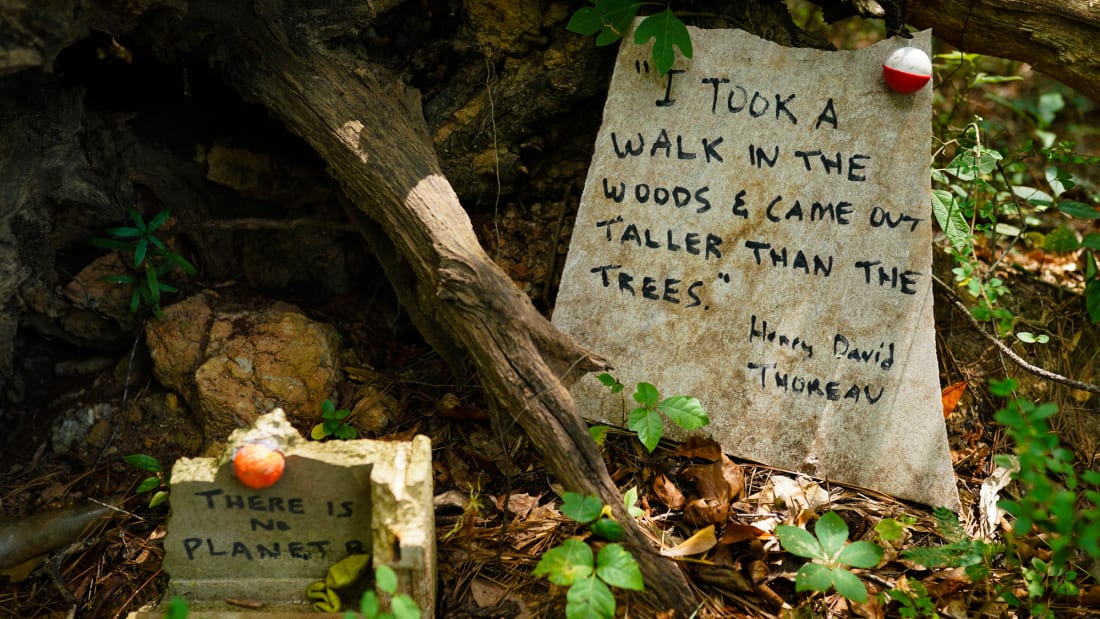 "I TOOK A
WALK IN THE
WOODS & CAME OUT
TALLER THAN THE
TREES."
Henry David
THOREAU
THERE IS
NO
PLANET B